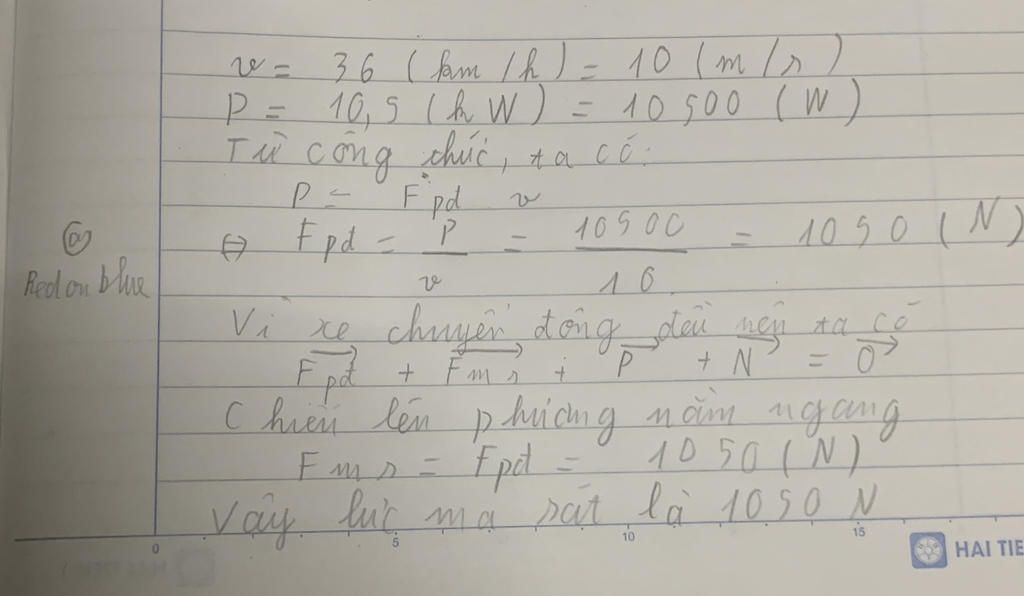 v = 36 (km/h) = 10 (m/s)
P = 10,5 (kW) = 10500 (W)
Từ công thức, ta có:
P = Fpđ v
⇔ Fpđ = P/v = 10500/10 = 1050 (N)
@
Redonblue
Vì xe chuyển động đều nên ta có
Fpđ + Fms + P + N = 0
Chiếu lên phương nằm ngang
Fms = Fpđ = 1050 (N)
Vậy lực ma sát là 1050 N
0 5 10 15
HAI TIE